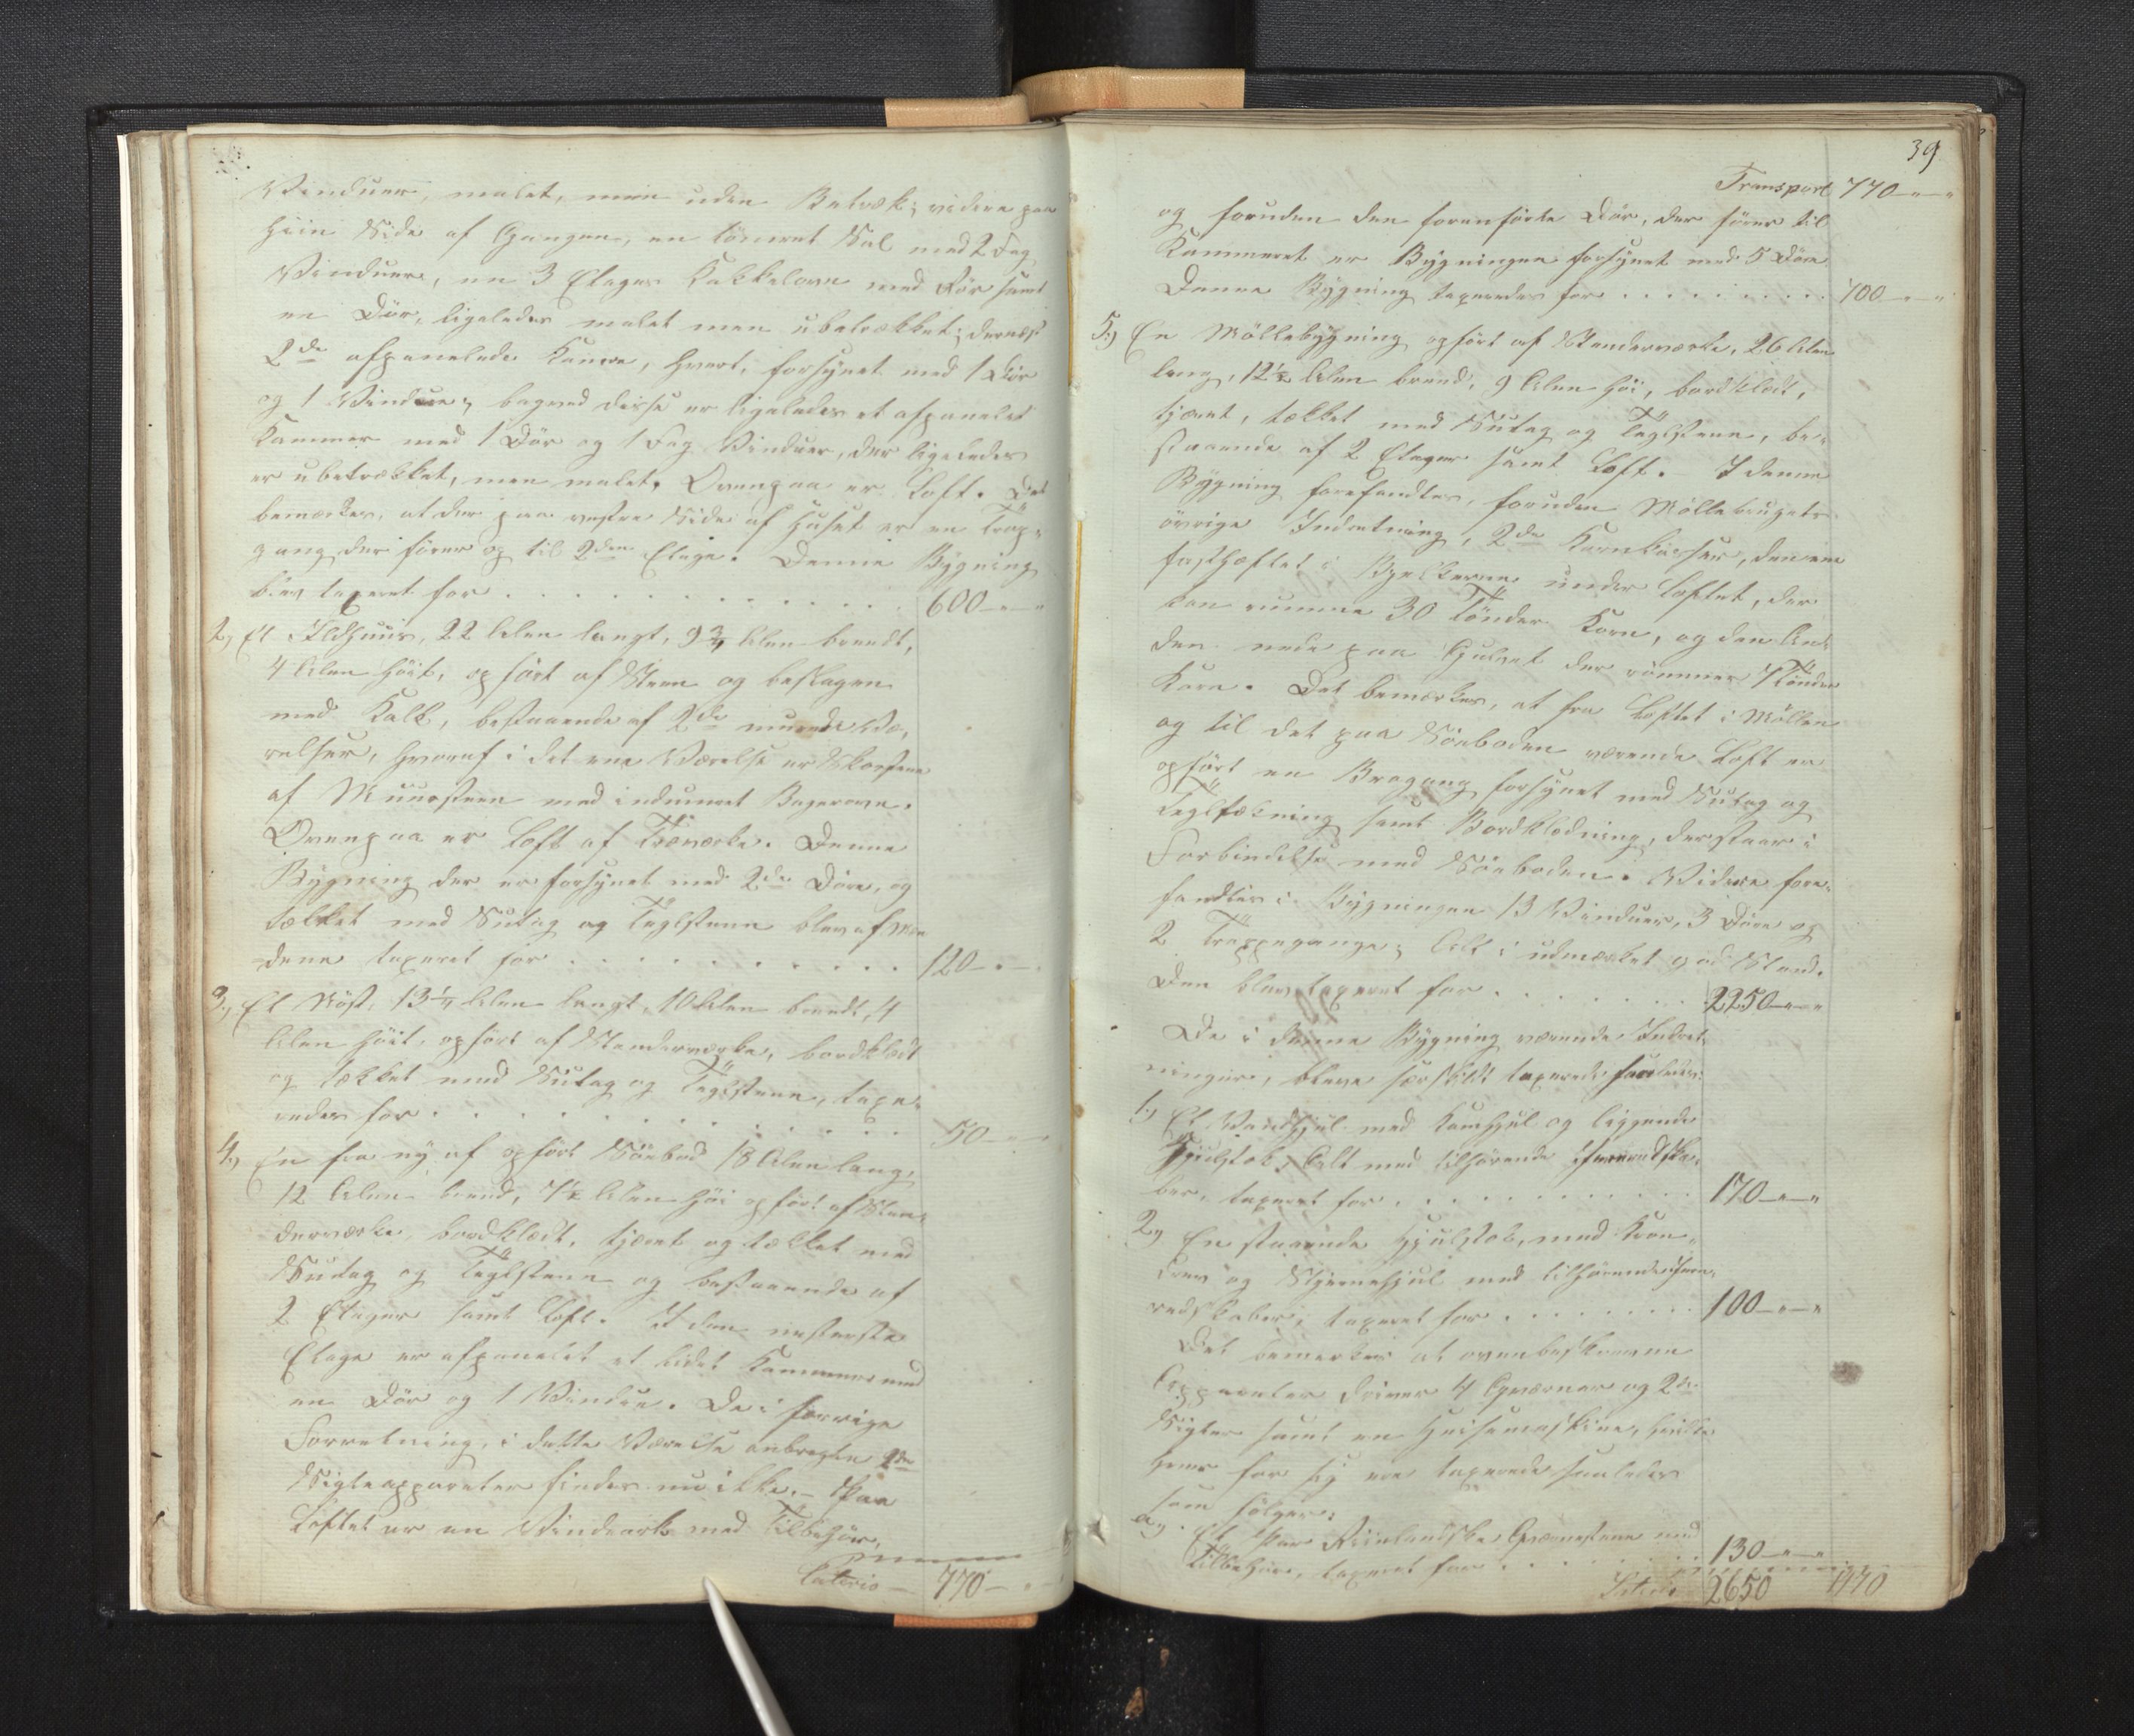 Vinduer, malet, men uden Betræk; videre paa
hiin Side af Gangen, en tömret Sal med 2 Fag
Vinduer, en 3 Etages Kakkelovn med Rör samt
en Dör, ligeledes malet men ubetrækket; dernæst
2de afpanelede Kamre, hvert, forsynet med 1 Dör
og 1 Vindue; bagved disse er ligeledes et afpanelet
Kammer med 1 Dör og 1 Fag Vinduer, der ligeledes
er ubetrækket, men malet. Ovenpaa er Loft. Det
bemærkes, at der paa vestre Side af Huset er en Trap-
gang der förer op til 2den Etage. Denne Bygning
blev taxeret for . . . . . . . . . . 600 - " - "
2, Et Ildhuus, 22 Alen langt, 9 3/4 Alen breedt,
4 Alen höit, opfört af Steen og beslagen
med Kalk, bestaaende af 2de murede Væ-
relser, hvoraf i det ene Værelse er Skorsteen
af Muursteen med indmuret Bagerovn.
Ovenpaa er Loft af Træværke. Denne
Bygning der er forsynet med 2de Döre, og
tækket med Sutag og Teglsteen blev af Mæn-
dene taxeret for . . . . . . . . . . 120 - " -
3, Et Nöst, 13 1/4 Alen langt, 10 Alen breedt, 4
Alen höit, opfört af Stenderværke, bordklædt
og tækket med Sutag og Teglsteen, taxe-
redes for . . . . . . . . . . 50 - " - "
4, En fra ny af opfört Söebod 18 Alen lang,
12 Alen breed, 7 1/2 Alen höi opfört af Sten-
derværke, bordklædt, tjæret og tækket med
Sutag og Teglsteen og bestaaende af
2 Etager samt Loft. I den nesterste
Etage er afpanelet et lidet Kammer med
en Dör og 1 Vindue. De i forrige
Forretning, i dette Værelse anbragte 2de
Sigteapparater findes nu ikke. - Paa
Loftet er en Vindeark med Tilbehör,
Lateris - 770 - " -
39
Transport 770 - " - "
og foruden den forenförte Dör, der förer til
Kammeret er Bygningen forsynet med 5 Döre
Denne Bygning taxeredes for . . . . . . . . 700 - " - "
5, En Möllebygning opfört af Stenderværke, 26 Alen
lang, 12 1/2 Alen breed, 9 Alen höi, bordklædt,
tjæret, tækket med Sutag og Teglsteen, be-
staaende af 2 Etager samt Loft. I denne
Bygning forefandtes, foruden Möllebrugets
övrige Indretning, 2de Kornkasser, den ene
fasthæftet i Bjelkerne under Loftet, der
kan rumme 30 Tönder Korn, og den An-
den nede paa Gulvet der rümmer 7 Tönder
Korn. Det bemærkes, at fra Loftet i Möllen
og til det paa Söeboden værende Loft er
opfört en Brogang forsynet med Sutag og
Tegltækning samt Bordklædning, der staar i
Forbindelse med Söeboden. Videre fore-
fandtes i Bygningen 13 Vinduer, 3 Döre og
2 Trappegange; Alt i udmærket god Stand.
Den blev taxeret for . . . . . . . . 2250 - " - "
De i denne Bygning værende Indret-
ninger, bleve særskildt taxerede saaledes:
1, Et Vandhjul med Kamhjul og liggende
Hjulstok, Alt med tilhörende Jernredska-
ber, taxeret for . . . . . . . . . . 170 - " - "
2, En staaende Hjulstok, med Kron-
drev og Stjernehjul med tilhörende Jern-
redskaber, taxeret for . . . . . . . . 100 - " - "
Det bemærkes at ovenbeskrevne
Apparater driver 4 Qværner og 2de
Sigter samt en Heisemaskine, hvilke
hver for sig ere taxerede saaledes
som fölger:
a, Et Par Riinlandske Qværnstene med
Tilbehör, taxeret for . . . . . . . . 130 - " - "
Lateris 2650 1470